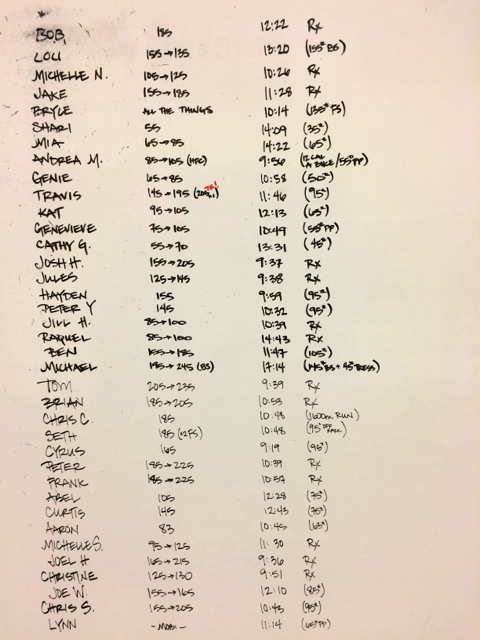 BOB 185 12:22 Rx
LOU 155→135 13:20 (155# BS)
MICHELLE N. 105→125 10:26 Rx
JAKE 155→185 11:28 Rx
BRYCE ALL THE THINGS 10:14 (135# FS)
SHARI 55 14:09 (35#)
MIA 65→85 14:22 (65#)
ANDREA M. 85→105 (HPC) 9:56 (12 CAL A. BIKE/55# PP)
GENIE 65→85 10:58 (50#)
TRAVIS 145→195 11:46 (95#)
KAT 95→105 12:13 (65#)
GENEVIEVE 75→105 10:49 (55# PP)
CATHY G. 55→70 13:31 (45#)
JOSH H. 155→205 9:37 Rx
JULES 125→145 9:38 Rx
HAYDEN 155 9:59 (95#)
PETER Y 145 10:32 (95#)
JILL H. 85→100 10:39 Rx
RAQUEL 85→100 14:43 Rx
BEN 155→185 11:47 (105#)
MICHAEL 185→245 (185) 17:14 (145# BS + 95# PRESS)
TOM 205→235 9:39 Rx
BRIAN 185→205 10:53 Rx
CHRIS C. 185 10:48 (1600m RUN)
SETH 185 (x2 FS) 10:48 (95# OFF RACK)
CYRUS 165 9:19 (95#)
PETER 185→225 10:39 Rx
FRANK 185→225 10:57 Rx
ABEL 105 12:28 (75#)
CURTIS 145 12:43 (75#)
AARON 83 10:45 (65#)
MICHELLE S. 95→125 11:30 Rx
JOEL H 165→215 9:36 Rx
CHRISTINE 125→130 9:51 Rx
JOE W. 155→165 12:10 (85#)
CHRIS S. 155→205 10:43 (95#)
LYNN 11:14 (65# PP)